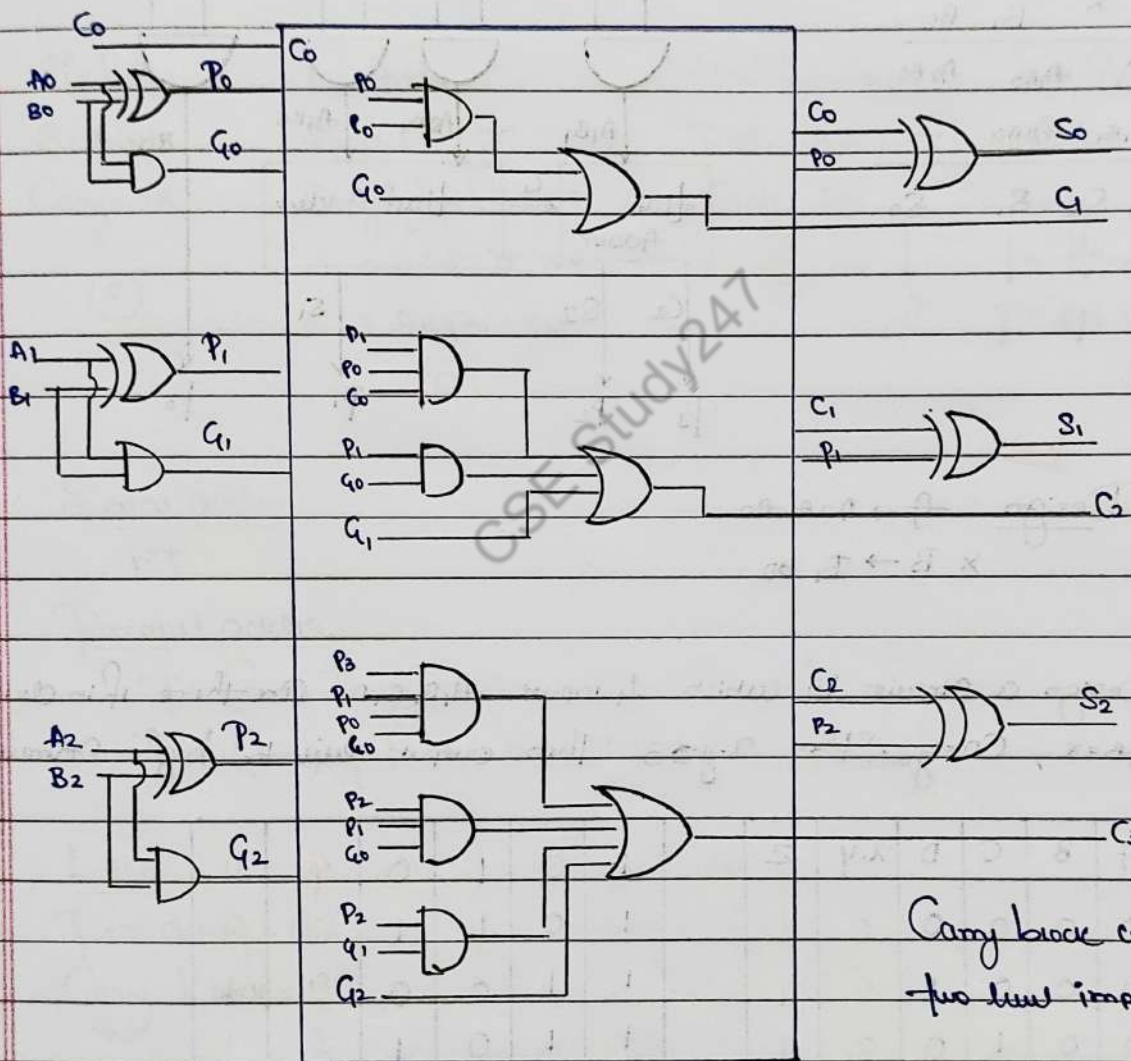 C0
C0
A0
B0
P0
G0
P0
P0
G0
C0
P0
S0
C1
A1
B1
P1
G1
P1
P0
C0
P1
G0
G1
C1
P1
S1
C2
A2
B2
P2
G2
P3
P1
P0
G0
P2
P1
G0
P2
G1
G2
C2
P2
S2
Carry block
two level
CSE Study247